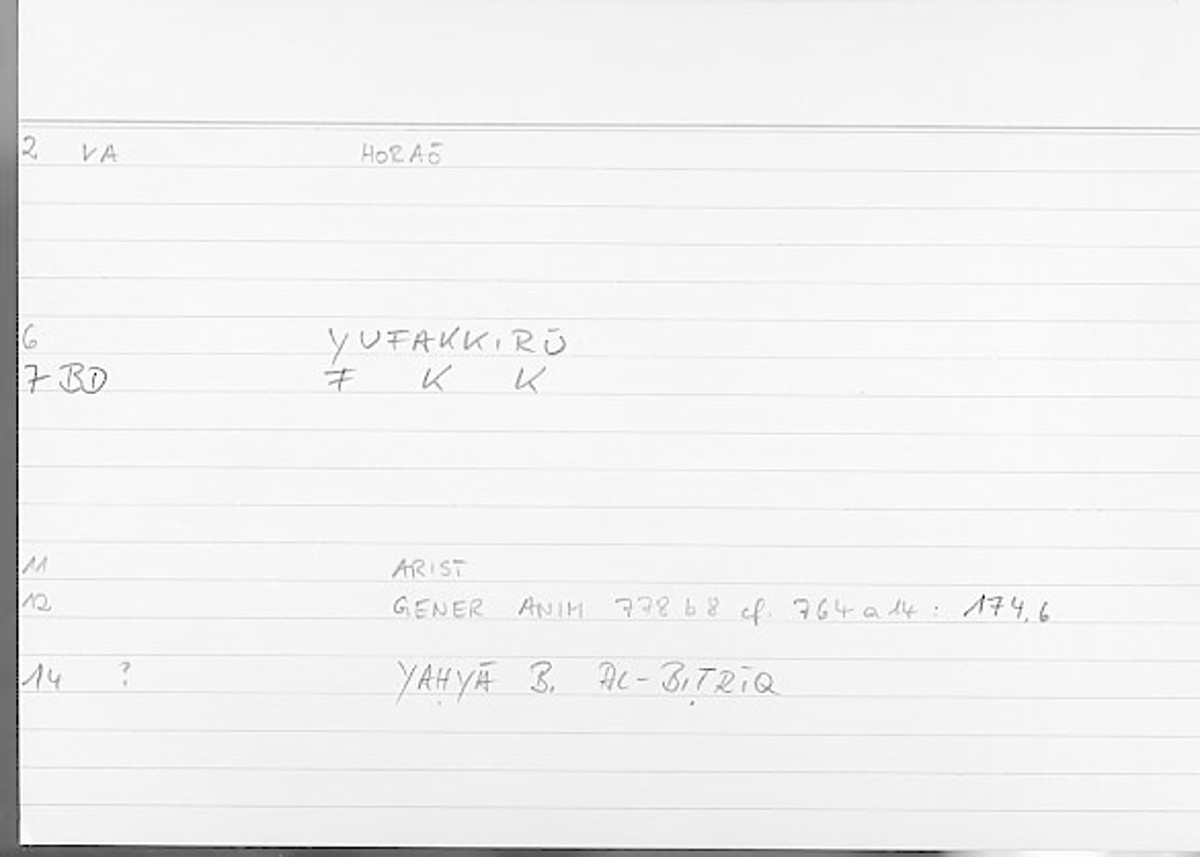 2 VA HORAŌ
6 YUFAKKIRŪ
7 BD F K K
11 ARIST
12 GENER ANIM 778 b 8 cf. 764 a 14 : 174,6
14 ? YAḤYĀ B. AL-BIṬRĪQ